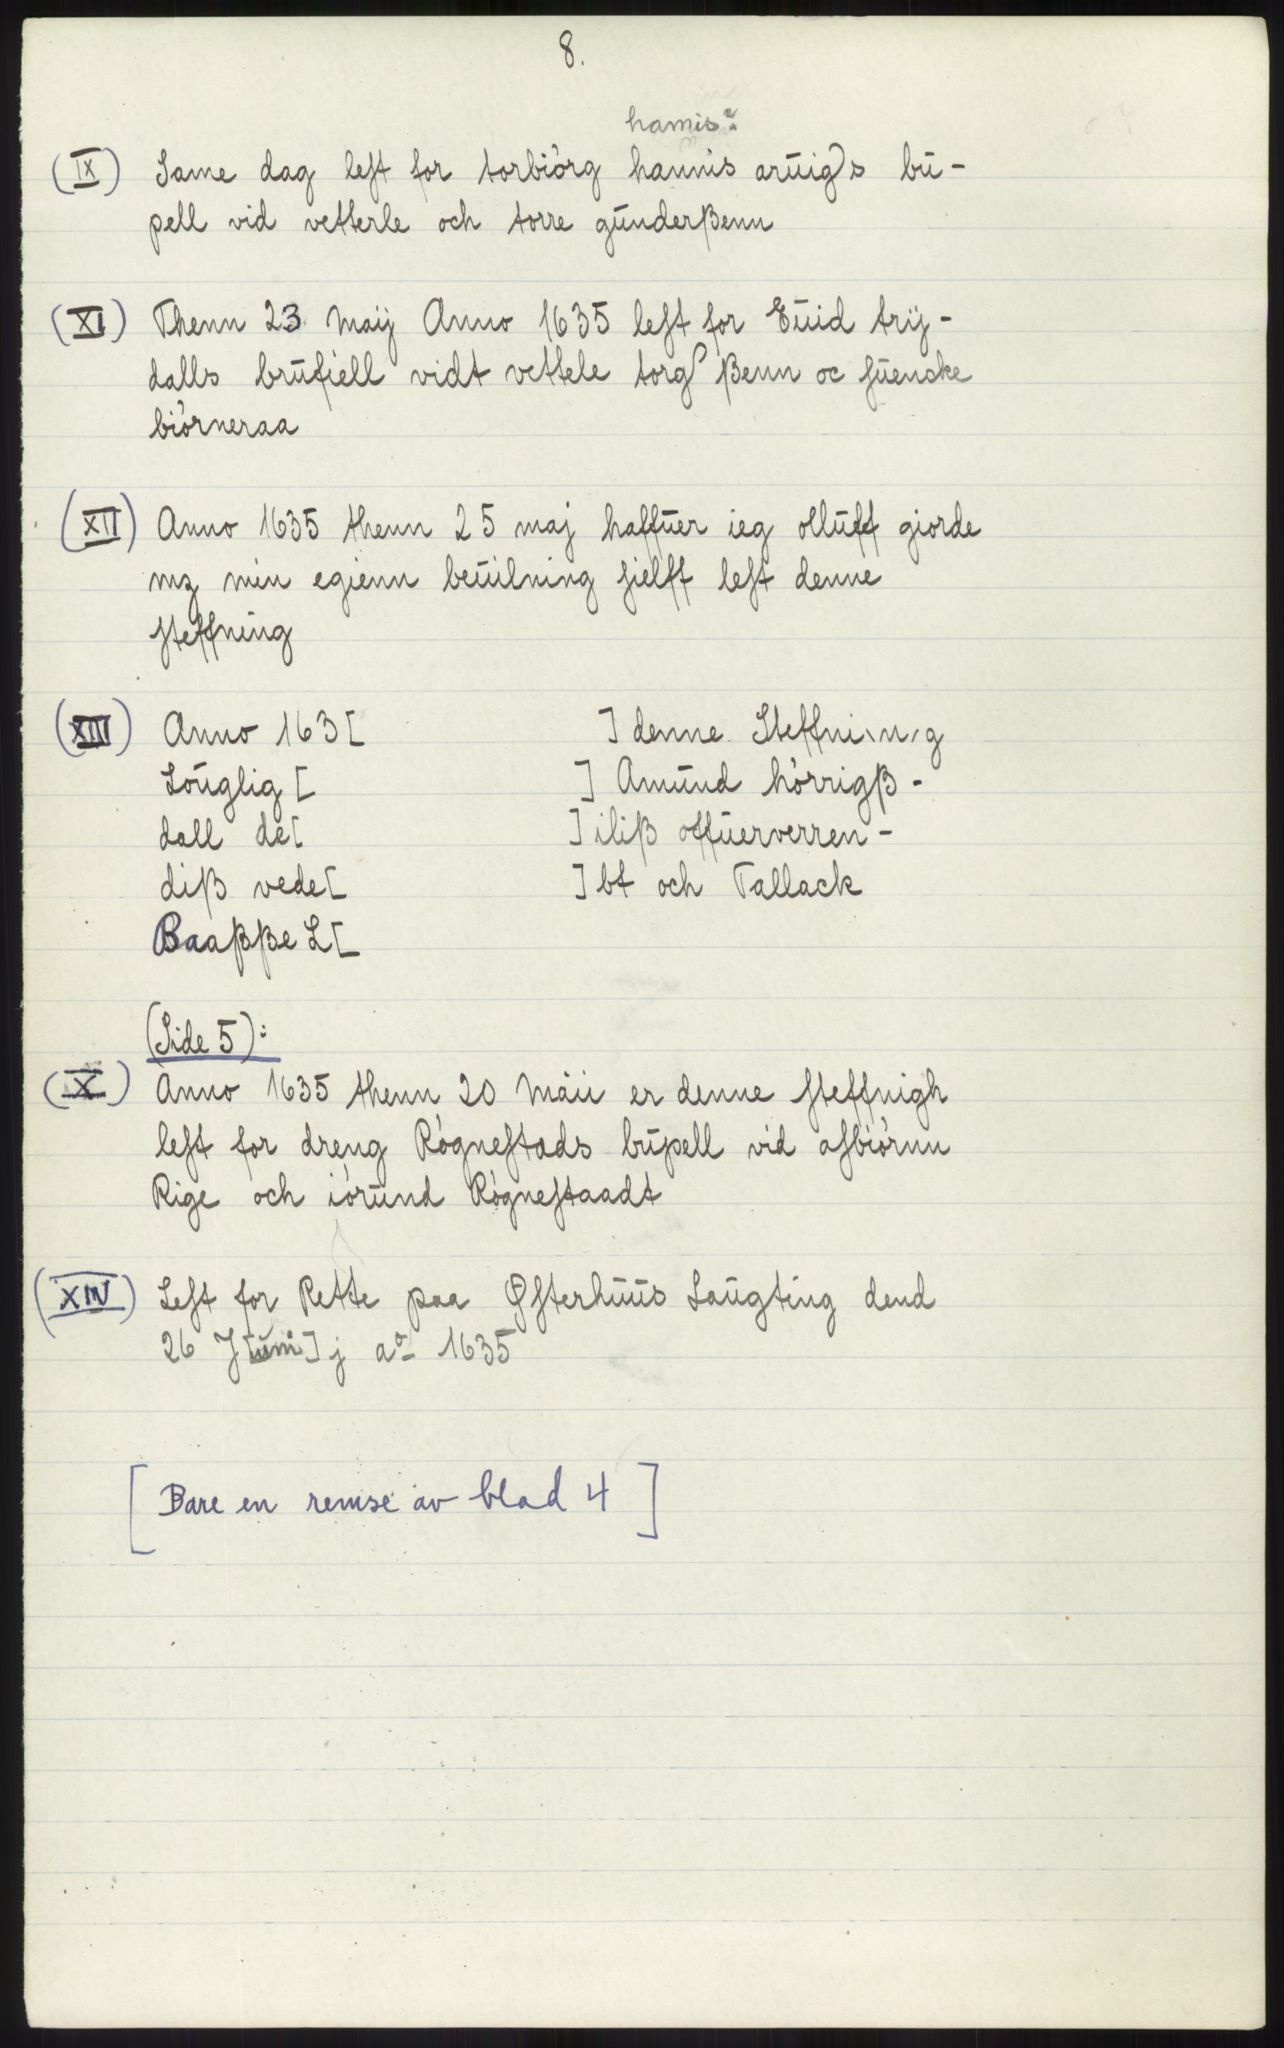 8.
hamis?
(IX) Same dag leſt for torbiòrg hannis arūigs bū-
pell vid vetterle och torre gūnderßenn
(XI) Thenn 23 maij Anno 1635 leſt for Eūid trij-
dalls brūfiell vidt vettele torg ßenn oc ſūencke
biòrneraa
(XII) Anno 1635 thenn 25 maj haffūer ieg ollūff giorde
mz min egienn beūilning ſielff leſt denne
ſteffning
(XIII) Anno 163[ ] denne Steffning
Loūglig [ ] Amūnd hòrrigß-
dall de[ ] iliß offūerverren-
diß vede[ ] bt och Tallack
Baaßße L[
(Side 5):
(X) Anno 1635 thenn 20 Māii er denne ſteffnigh
leſt for dreng Rògneſtads būpell vid aſbiòrnn
Rige och iòrūnd Rògneſtaadt
(XIV) Leſt for Rette paa Øſterhūūs Laūgting dend
26 J[ūni]j aº 1635
[Bare en remse av blad 4]